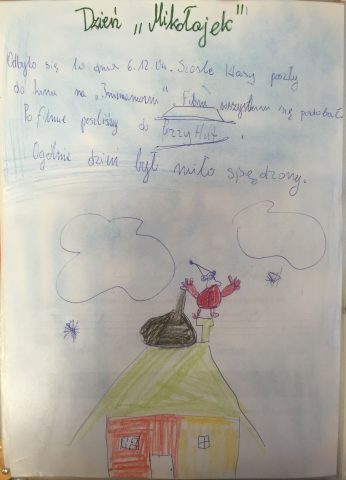 Dzień „Mikołajek"
Odbyło się to dnia 6.12 br. Szóste klasy poszły
do kina na „ " Film wszystkim się podobał
Po filmie poszliśmy do Pizzy Hut.
Ogólnie dzień był miło spędzony.